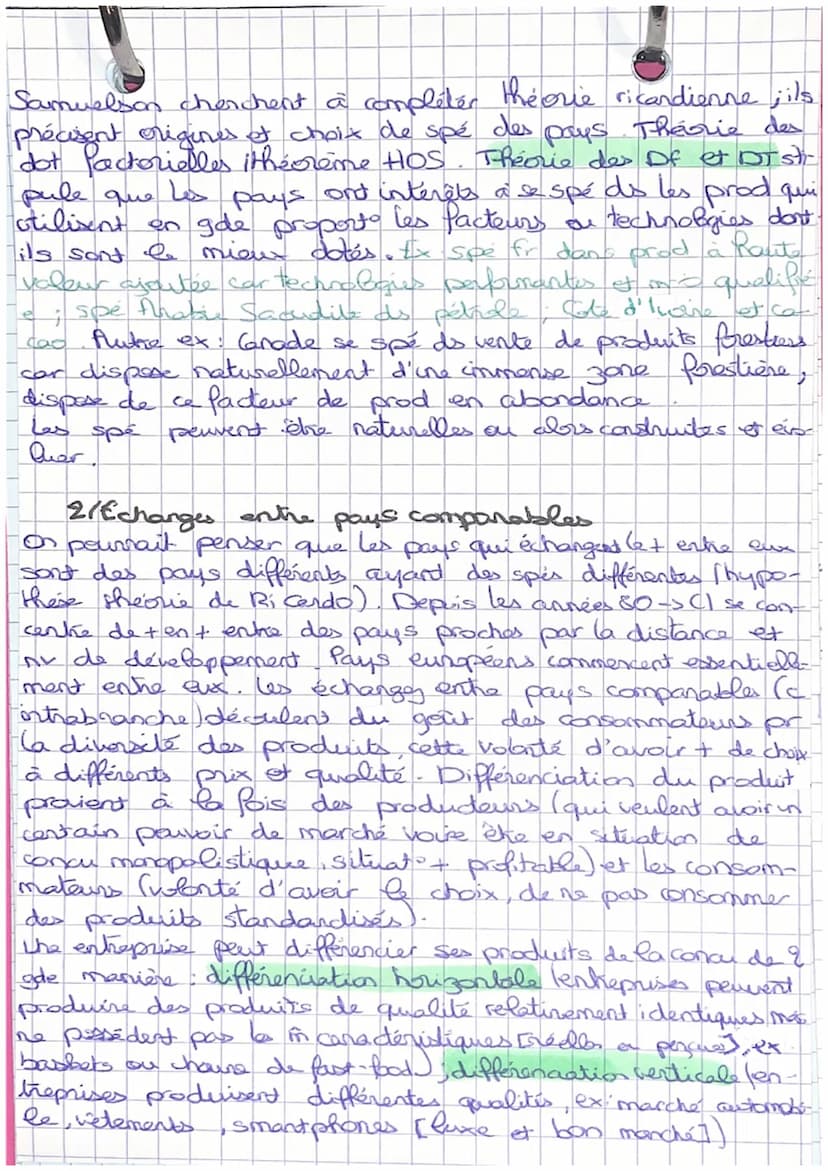 Samuelson cherchent à compléter théorie ricardienne ; ils
précisent origines et choix de spé des pays. Théorie des
dot factorielles : théorème HOS. Théorie des DF et DT sti-
pule que les pays ont intérêts à se spé ds les prod qui
utilisent en gde proport° les facteurs ou technologies dont
ils sont le mieux dotés. Ex spé fr dans prod à haute
valeur ajoutée car technologies performantes et m-o qualifié
e ; spé Arabie Saoudite ds pétrole ; Côte d'Ivoire et ca-
cao. Autre ex : Canade se spé ds vente de produits forestiers
car dispose naturellement d'une immense zone forestière,
dispose de ce facteur de prod en abondance.
Les spé peuvent être naturelles ou alors construites et évo-
luer.
2/ Echanges entre pays comparables
On pourrait penser que les pays qui échangent le + entre eux
sont des pays différents ayant des spés différentes (hypo-
thèse théorie de Ricardo). Depuis les années 80 -> CI se con-
centre de + en + entre des pays proches par la distance et
nv de développement. Pays européens commercent essentielle-
ment entre eux. Les échanges entre pays comparables (c
intrabranche) découlent du goût des consommateurs pr
la diversité des produits, cette volonté d'avoir + de choix
à différents prix et qualité. Différenciation du produit
provient à la fois des producteurs (qui veulent avoir un
certain pouvoir de marché voire être en situation de
concu monopolistique, situat° + profitable) et les consom-
mateurs (volonté d'avoir le choix, de ne pas consommer
des produits standardisés).
Une entreprise peut différencier ses produits de la concu de 2
gde manière : différenciation horizontale (entreprises peuvent
produire des produits de qualité relativement identiques mais
ne possèdent pas les m̂ caractéristiques [réelles ou perçues], ex
baskets ou chaine de fast-food) ; différenciation verticale (en-
treprises produisent différentes qualités, ex : marché automobi-
le, vêtements, smartphones [luxe et bon marché])